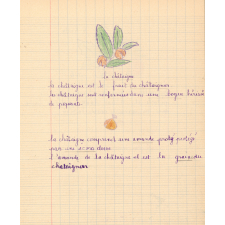 La châtaigne
La châtaigne est le fruit du châtaignier
La châtaigne est enfermée dans une bogue hérissée
de piquants.
La châtaigne comprend une amande protégé
par une
L'amande de la châtaigne est la graine du
chataignier